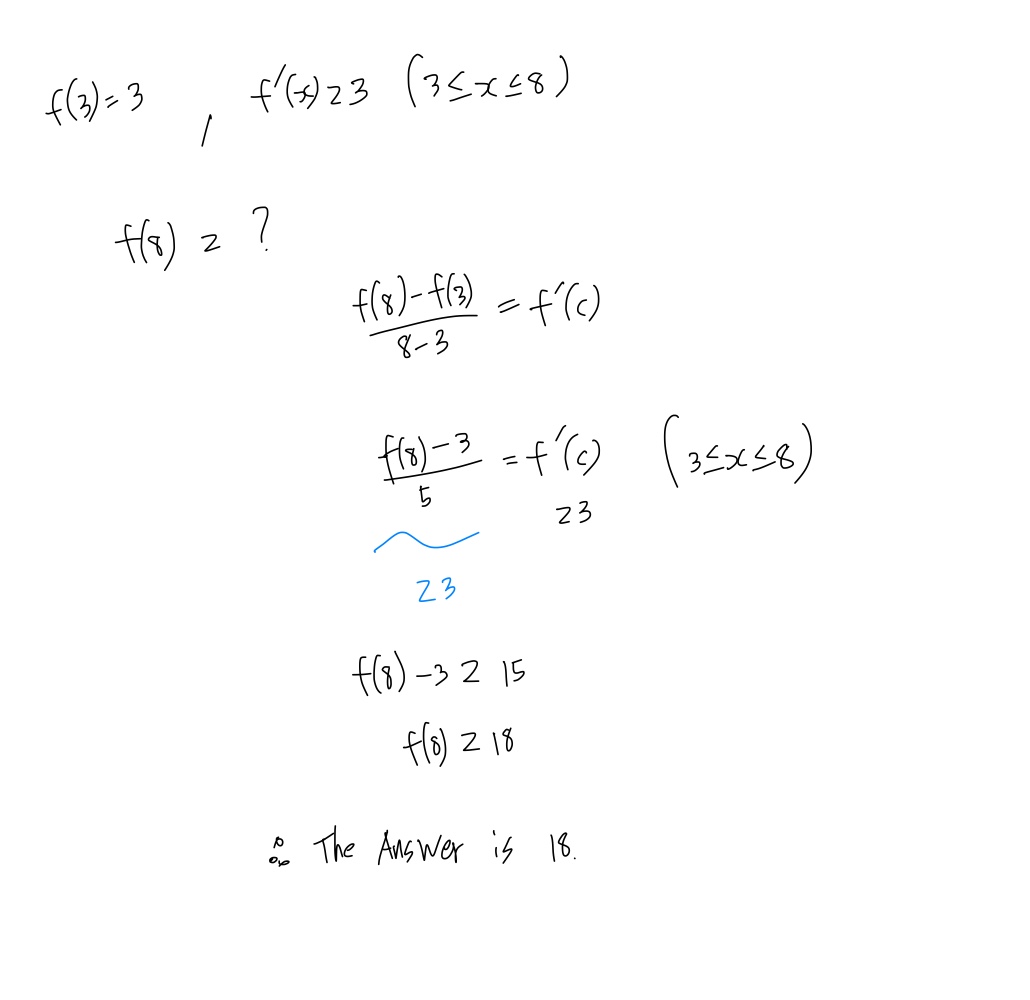 f(3)=3 , f'(x)≥3 (3≤x≤8)
f(8) ≥ ?
(f(8)-f(3))/(8-3) = f'(c)
(f(8)-3)/5 = f'(c) (3≤x≤8)
≥3
≥3
f(8)-3 ≥ 15
f(8) ≥ 18
∴ The Answer is 18.